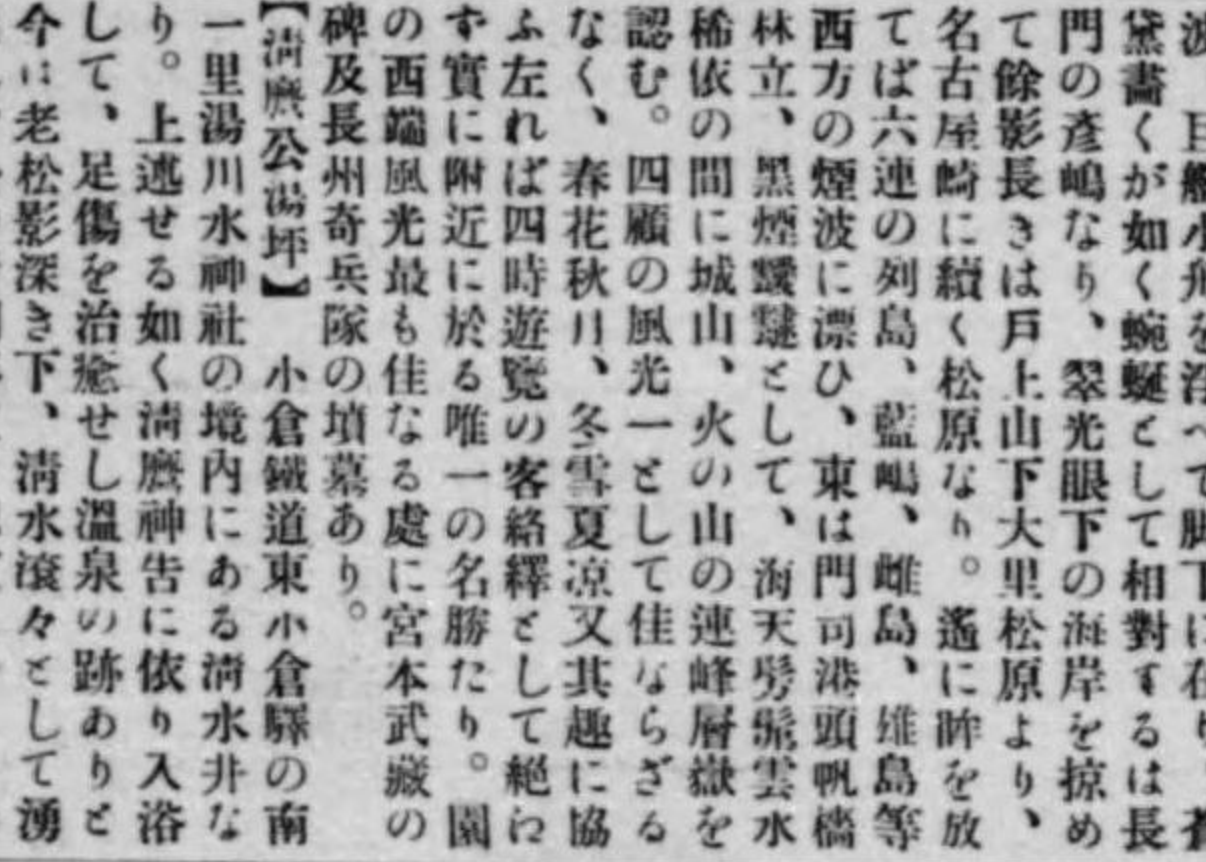 波　巨艦小舟を浮べて脚下に在り、蒼
黛畵くが如く蜿蜒として相對するは長
門の彥嶋なり、翠光眼下の海岸を掠め
て餘影長きは戶上山下大里松原より、
名古屋崎に續く松原なり。遙に眸を放
てば六連の列島、藍嶋、雌島、雄島等
西方の煙波に漂ひ、東は門司港頭帆檣
林立、黑煙靉靆として、海天髣髴雲水
稀依の間に城山、火の山の連峰層嶽を
認む。四顧の風光一として佳ならざる
なく、春花秋月、冬雪夏凉又其趣に協
ふ左れば四時遊覽の客絡繹として絶に
ず實に附近に於る唯一の名勝たり。園
の西端風光最も佳なる處に宮本武藏の
碑及長州奇兵隊の墳墓あり。
【淸麿公湯坪】　小倉鐵道東小倉驛の南
一里湯川水神社の境內にある淸水井な
り。上述せる如く淸麿神告に依り入浴
して、足傷を治癒せし溫泉の跡ありと
今は老松影深き下、淸水滾々として湧